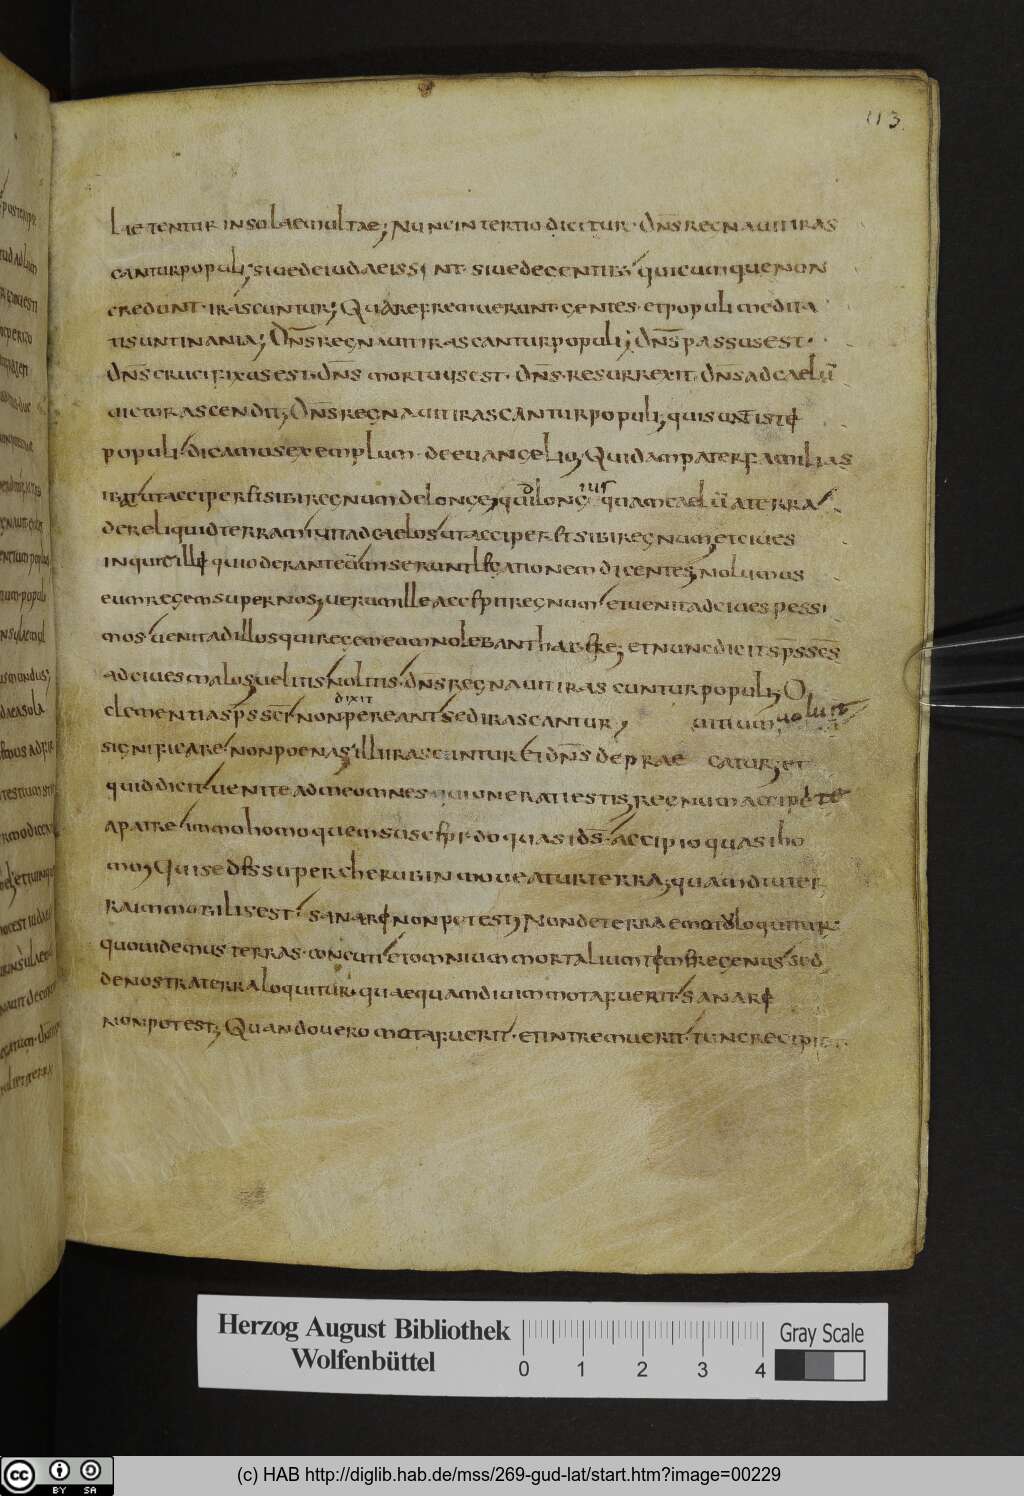 113
laetentur insolae multae; Nunc in tertio dicitur· Dn̄s regnauit iras
cantur populi; siue de iudaeis sint· siue de gentib; quicumque non
credunt· irascuntur; Quare fremuerunt· gentes· et populi medita
ti sunt inania; Dn̄s regnauit irascantur populi; dn̄s passus est·
dn̄s crucifixus est· dn̄s mortuus est· dn̄s· resurrexit· dn̄s ad caelū
uictor ascendit; Dn̄s regnauit irascantur populi; qui sunt isti
populi· dicamus exemplum· de euangelio; Quidam pater familias
ut acciperet sibi regnum de longe; quam caelū a terra
dereliquid terram; iuit ad caelos ut acciperet sibi regnum; et ciues
qui oderant eū miserunt legationem dicentes; nolumus
eum regem super nos; uerum ille accepit regnum· et uenit ad ciues pessi
mos· uenit ad illos qui regem eum nolebant et nunc dicit sp̄s sc̄s
ad ciues malos; uelitis nolitis· dn̄s regnauit irascuntur populi; O
dixit
clementia sp̄s sc̄i non pereant sed irascantur uitium uoluit
significare non poenas; illi irascuntur Et dn̄s de prae catur; et
quid dicit uenite ad me omnes qui onerati estis; regnum accipite
a patre immo homo quem suscepi· do quasi ds̄· accipio quasi ho
mo; Qui sedes super cherubin moueatur terra; quamdiu ter
ra immobilis est· sanare non potest; Non de terra loquitur·
quo uidemus· terras· concuti et omnium mortalium sed
de nostra terra loquitur· quae quamdiu immota fuerit· sanare
non potest; Quando uero mota fuerit· et intremuerit· tunc recipiet
Herzog August Bibliothek
Wolfenbüttel
0 1 2 3 4
Gray Scale
cc BY SA
(c) HAB http://diglib.hab.de/mss/269-gud-lat/start.htm?image=00229